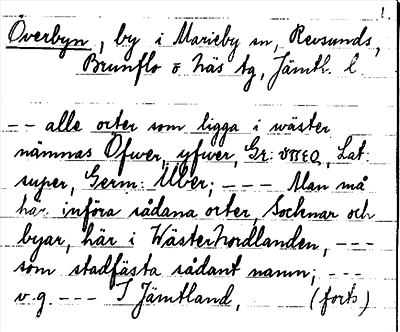 1.
Överbyn, by i Marieby sn, Revsunds,
Brunflo o. Näs tg, Jämtl. l.
-- alle orter som ligga i wäster
nämnas Öfwer, yfwer, Gr: ὑπερ, Lat:
super, Germ: Über; --- Man må
här införa sådana orter, Socknar och
byar, här i Wästerhordlanden, ---
som stadfästa sådant namn; ---
v.g. --- I Jämtland, (forts)